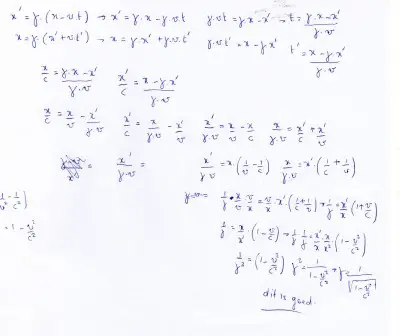 x' = γ.(x-vt) → x' = γ.x - γ.v.t   γ.vt = γ.x - x' → t = γ.x - x' / γ.v
x = γ.(x'+vt') → x = γ.x' + γ.v.t'   γ.vt' = x - γ.x'   t' = x - γ.x' / γ.v
x/c = γ.x - x' / γ.v   x'/c = x - γ.x' / γ.v
x/c = x/v - x'/γ.v   x'/c = x/γ.v - x'/v   x'/γ.v = x/v - x/c   x/γ.v = x'/c + x'/v
= x'/γ.v =   x'/γ.v = x.(1/v - 1/c)   x/γ.v = x'.(1/c + 1/v)
1/γ . x/v . v/x = v/x . x'.(1/c + 1/v) → 1/γ = x'/x (1 + v/c)
1/v² - 1/c²)   1/γ = x/x'.(1 - v/c) → 1/γ . 1/γ = x'/x . x/x' (1 - v²/c²)
= 1 - v²/c²   1/γ² = (1 - v²/c²)   γ² = 1 / 1 - v²/c² → γ = 1 / √(1 - v²/c²)
dit is goed.